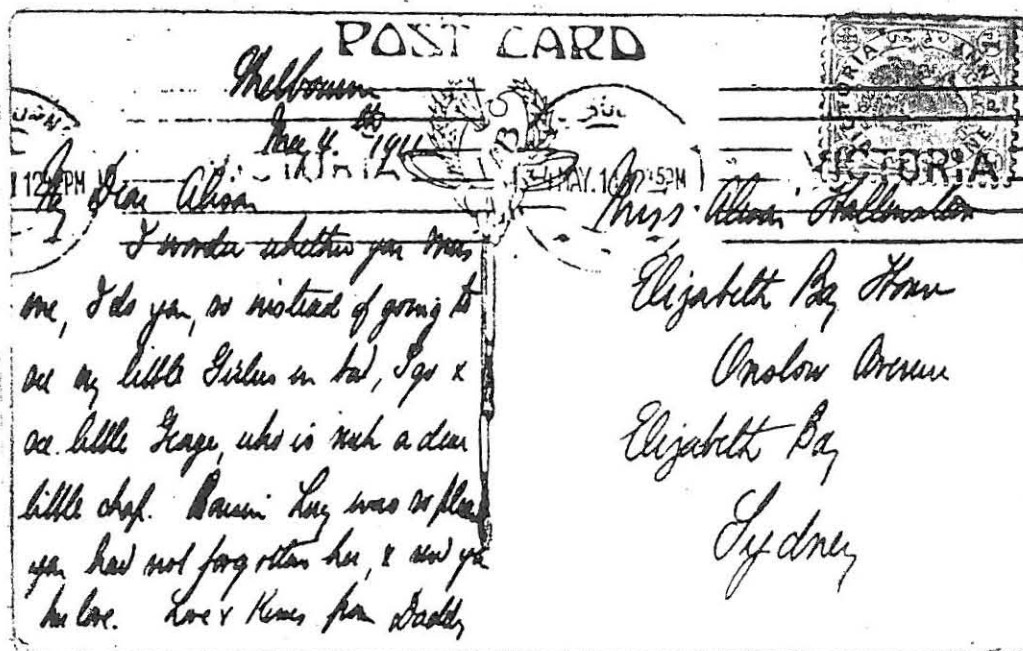 POST CARD
Melbourne
May 4th 1911
My Dear Alison
I wonder whether you miss
me, I do you, so instead of going to
see my little Girlies in bed, I go &
see little George, who is such a dear
little chap. Cousin Lucy was so pleased
you had not forgotten her, & send you
her love. Love & Kisses from Daddy
VICTORIA
VICTORIA
ONE PENNY
12 PM
MAY. 15PM
Miss Alison
Elizabeth Bay House
Onslow Avenue
Elizabeth Bay
Sydney